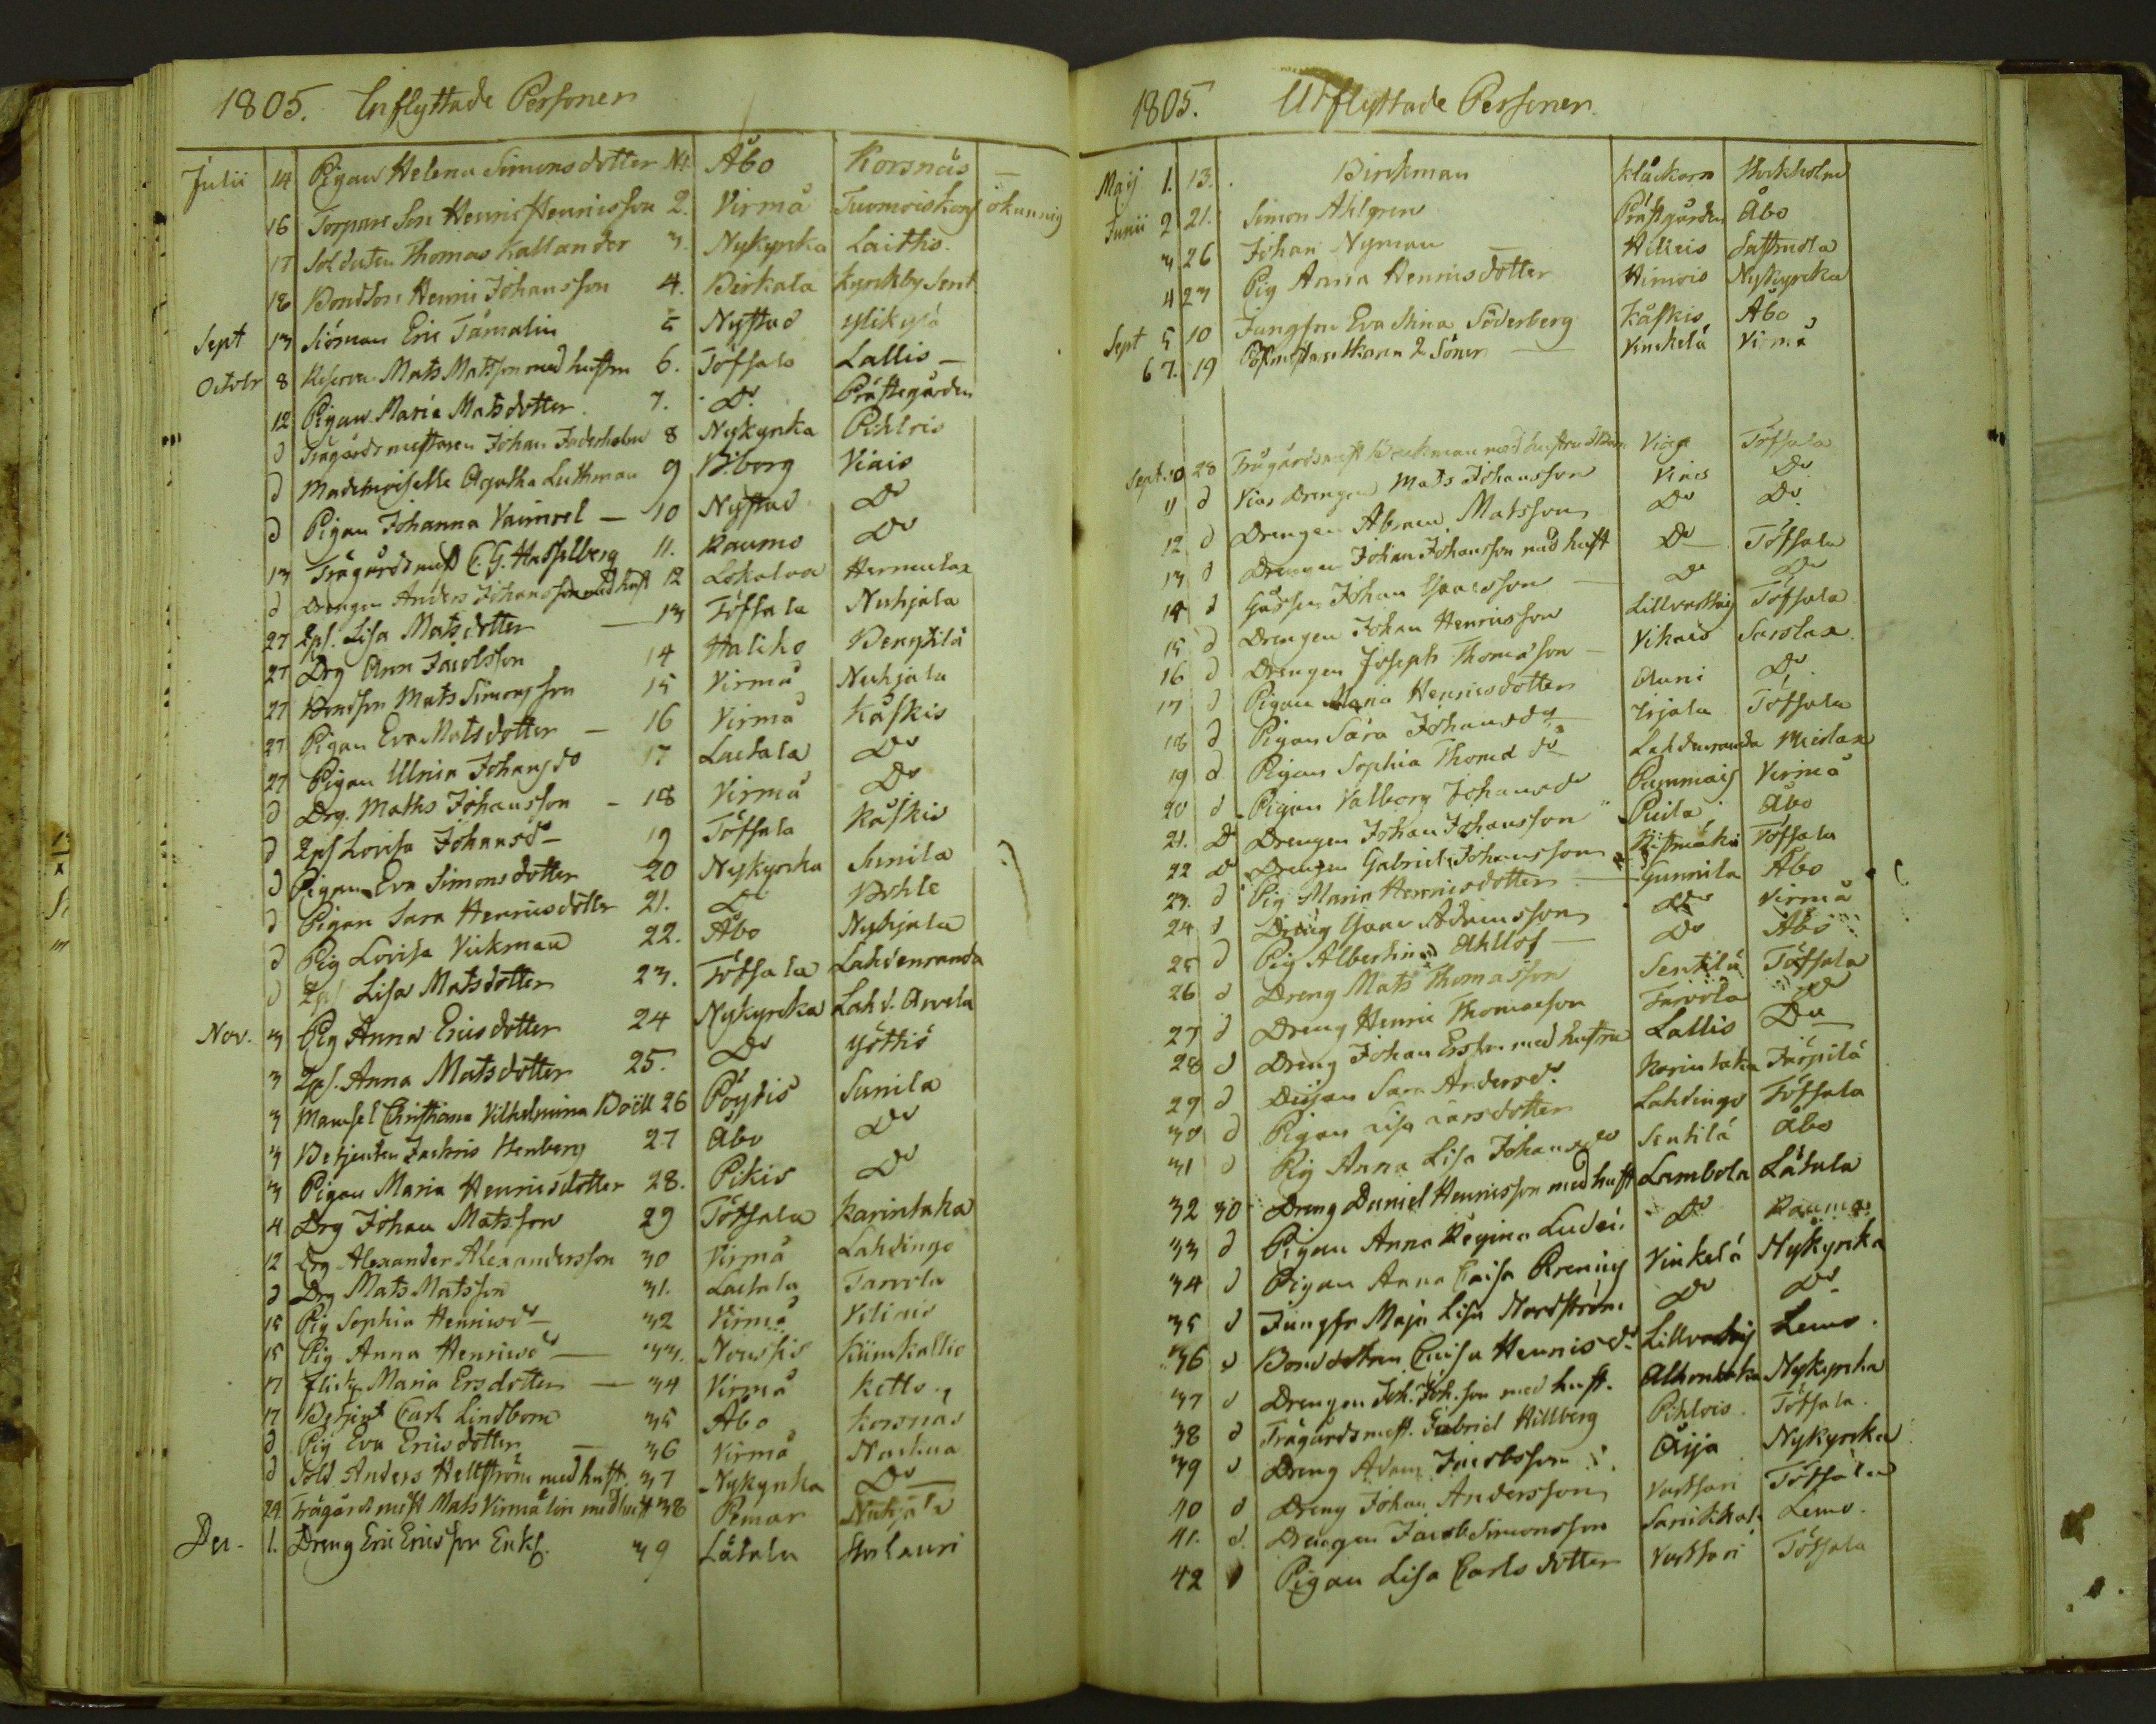 1805. Inflyttade Personer
Julii 14 Pigan Helena Simonsdotter N:1 Åbo Korsnäs —
16 Torpare Son Henric Henricsson 2. Virmå Tuomoiskorf okunnig
17 Soldaten Thomas Kallander 3. Nykyrka Laittis.
18 Bondson Henric Johansson 4. Birkala Kyrckby
Sept 13 Siöman Eric Tämalin 5 Nystad
Octobr 8 Mats Matsson med hustru 6. Töfsala Lallis —
12 Pigan Maria Matsdotter. 7. Do Prästegården
d Trägårdsmestaren Johan 8 Nykyrka Pihlois
d Mademoiselle Agatha Luthman 9 Viborg Viais
d Pigan Johanna — 10 Nystad Do
13 Trägårdsmest C. G. Hasselberg 11. Raumo Do
d Drengen Anders Johansson med hust 12 Lokalax Hermulax
27 Lisa Matsdotter — 13 Töfsala Nuhjala
27 Drg Ann Jacobsson 14 Haliko
27 Bondson Mats Simonsson 15 Virmå Nuhjala
27 Pigan Eva Matsdotter — 16 Virmå Kåskis
27 Pigan Ulrica Johansdo 17 Laitala Do
d Drg. Maths Johansson — 18 Virmå Do
d Lovisa Johansdo — 19 Töfsala Kåskis
d Pigan Eva Simonsdotter 20 Nykyrka Sunila
d Pigan Sara Henricsdotter 21. Do
d Pig Lovisa Vickman 22. Åbo Nuhjala
d Lisa Matsdotter 23. Töfsala Lahdenranda
Nov. 3 Pig Anna Ericsdotter 24 Nykyrka Lahd. Arvela
3 Anna Matsdotter 25. Do
3 Mamsel Christiana Vilhelmina Boëll 26 Pöytis Sunila
3 Betjenten Henberg 27 Åbo Do
3 Pigan Maria Henricsdotter 28. Pikis Do
4 Drg Johan Matsson 29 Töfsala Karintaka
12 Drg Alexander Alexandersson 30 Virmå Lahdingo
d Drg Mats Matsson 31. Laitala Tarvola
15 Pig Sophia Henricsdo — 32 Virmå
15 Pig Anna Henricsdo — 33. Nousis
17 Maria Ersdotter — 34 Virmå
17 Betjent Carl Lindbom 35 Åbo Korsnäs
d Pig Eva Ericsdotter — 36 Virmå
d Sold Anders Hellström med hust. 37 Nykyrka Do
24 Trägårdsmest Mats Virmalin med hust 38 Pemar Nuhjala
Dec. 1. Dreng Eric Ericsson Enkl. 39 Låtala
1805. Utflyttade Personer
Maij 1. 13. Birckman Klåckorn Stockholm
Junii 2 21. Simon Ahlgren Prästgården Åbo
3 26 Johan Nyman — Hilleis
4 23 Pig Anna Henricsdotter Himois Nykyrcka
Sept 5 10 Jungfru Eva Stina Söderberg Kåskis Åbo
6 7. 19 2 Söner — Vinckelä Virmå
Sept. 10 28 Trägårdsmest med hustru Töfsala
11 d Drengen Mats Johansson Do
12 d Drengen Abram Matsson Do Do
13 d Drengen Johan Johansson med hust Do Töfsala
14 d Gossen Johan Isaacsson — Do Do
15 d Drengen Johan Henricsson Lillvartsaij Töfsala
16 d Drengen Joseph Thomasson — Vihais Sarolax
17 d Pigan Maria Henricsdotter Auni Do
18 d Pigan Sara Johansdo Irjala Töfsala
19 d Pigan Sophia Thomasdo Lahdenranda Mietois
20 d Pigan Valborg Johansdo Pammais Virmå
21. Do Drengen Johan Johansson Puila Åbo
22 Do Drengen Gabriel Johansson Ristimäki Töfsala
23. d Pig Maria Henricsdotter — Gunnila Åbo
24 d Dreng Isaac Adamsson Do Virmå
25 d Pig Albertina Ahllöf — Do Åbo
26 d Dreng Mats Thomasson Sentilä Töfsala
27 d Dreng Henric Thomasson Tarvola Do
28 d Dreng Johan Ersson med hustru Lallis Do
29 d Pigan Sara Andersdo Karintaka
30 d Pigan Lisa Larsdotter Lahdingo Töfsala
31 d Pig Anna Lisa Johansdo Sentilä Åbo
32 30 Dreng Daniel Henricsson med hust Lambola Låtala
33 d Pigan Anna Regina Do Raumo
34 d Pigan Anna Caisa Vinkelä Nykyrcka
35 d Jungfr Maja Lisa Nordström Do Do
36 d Bonddottren Caisa Henricsdo Lillvartsaij Lemo.
37 d Drengen Joh. Joh.son med hust. Alhontaka Nykyrka
38 d Trägårdsmest. Gabriel Hillberg Pihlois. Töfsala.
39 d Dreng Adam Jacobsson Åija Nykyrka
40 d Dreng Johan Andersson Vartsari Töfsala
41. d. Drengen Jacob Simonsson Lemo.
42 d Pigan Lisa Carlsdotter Vartsari Töfsala